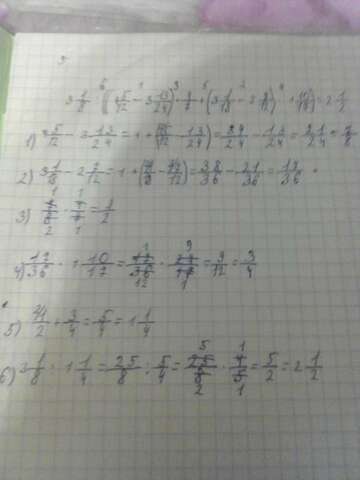 3 1/8 : ((4 5/12 - 3 13/24) · 4/7 + (3 1/18 - 2 7/12) · 1 10/17) = 2 1/2
1) 4 5/12 - 3 13/24 = 1 + (10/24 - 13/24) = 34/24 - 13/24 = 21/24 = 7/8
2) 3 1/18 - 2 7/12 = 1 + (1/18 - 7/12) = 38/36 - 21/36 = 17/36
3) 7/8 · 4/7 = 1/2
4) 17/36 · 1 10/17 = 17/36 · 27/17 = 9/12 = 3/4
5) 1/2 + 3/4 = 5/4 = 1 1/4
6) 3 1/8 : 1 1/4 = 25/8 : 5/4 = 25/8 · 4/5 = 5/2 = 2 1/2